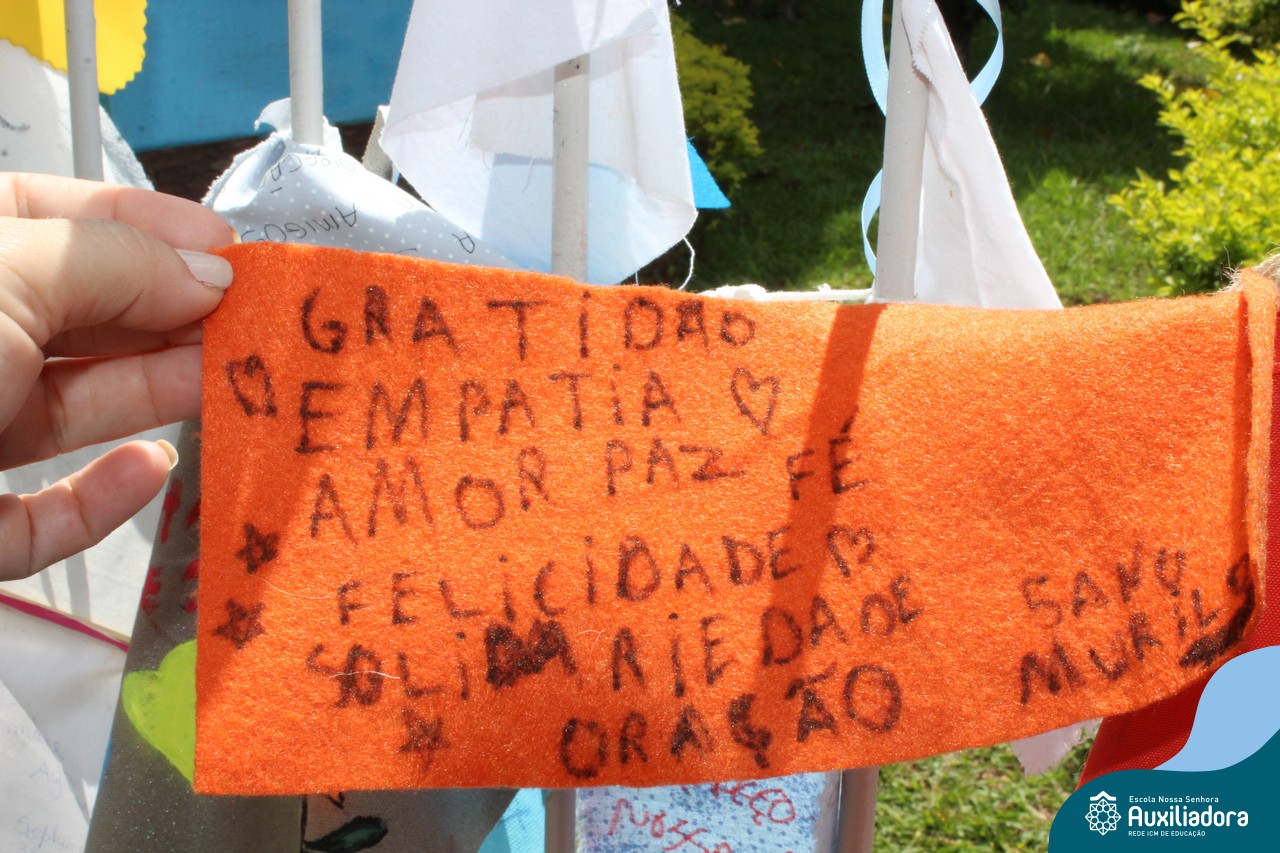 GRATIDÃO
EMPATIA
AMOR PAZ FÉ
FELICIDADE
SOLIDARIEDADE
ORAÇÃO
MURILO
AMIGOS
Escola Nossa Senhora
Auxiliadora
REDE ICM DE EDUCAÇÃO